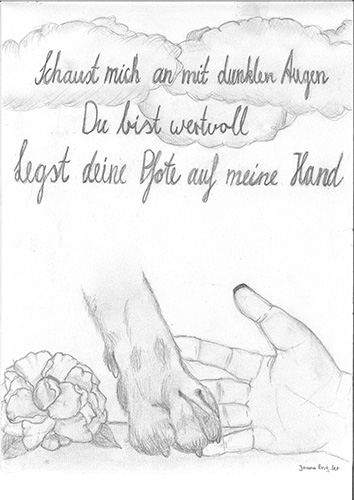 Schaust mich an mit dunklen Augen
Du bist wertvoll
Legst deine Pfote auf meine Hand